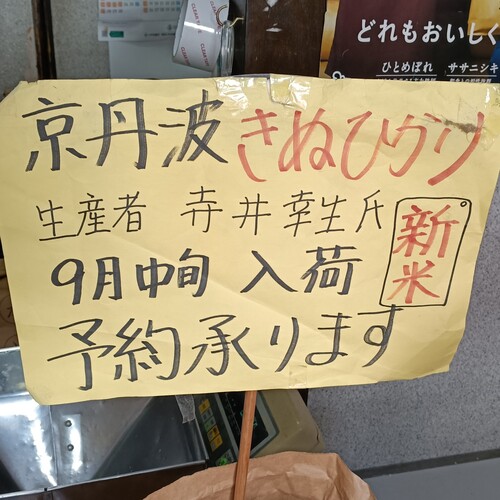 どれもおいしく
ひとめぼれ ササニシキ
京丹波 きぬひかり
生産者 寺井幸生氏
新米
9月中旬 入荷
予約承ります